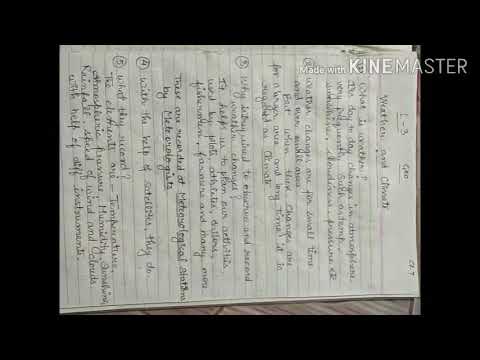 Made with KINEMASTER
L-3 Geo Cl. 7
Weather and Climate
What is weather?
Its day to day change in atmosphere,
very frequently, such as temp.
sunshine, cloudiness, pressure etc
② Weather changes are for small time
and over small area
But when these changes are
for a larger area and long time it is
as Climate
③ Why is it to observe and record
weather changes?
It helps us to plan our activities,
used by pilots, sailors,
fisherman, farmers and many more
These are recorded at Meteorological stations
by Meteorologists
④ With the help of satellites, they do.
⑤ What they record?
The elements are - Temperature,
Atmospheric pressure, Humidity, Sunshine,
Rainfall, speed of wind and Clouds
with help of diff instruments.